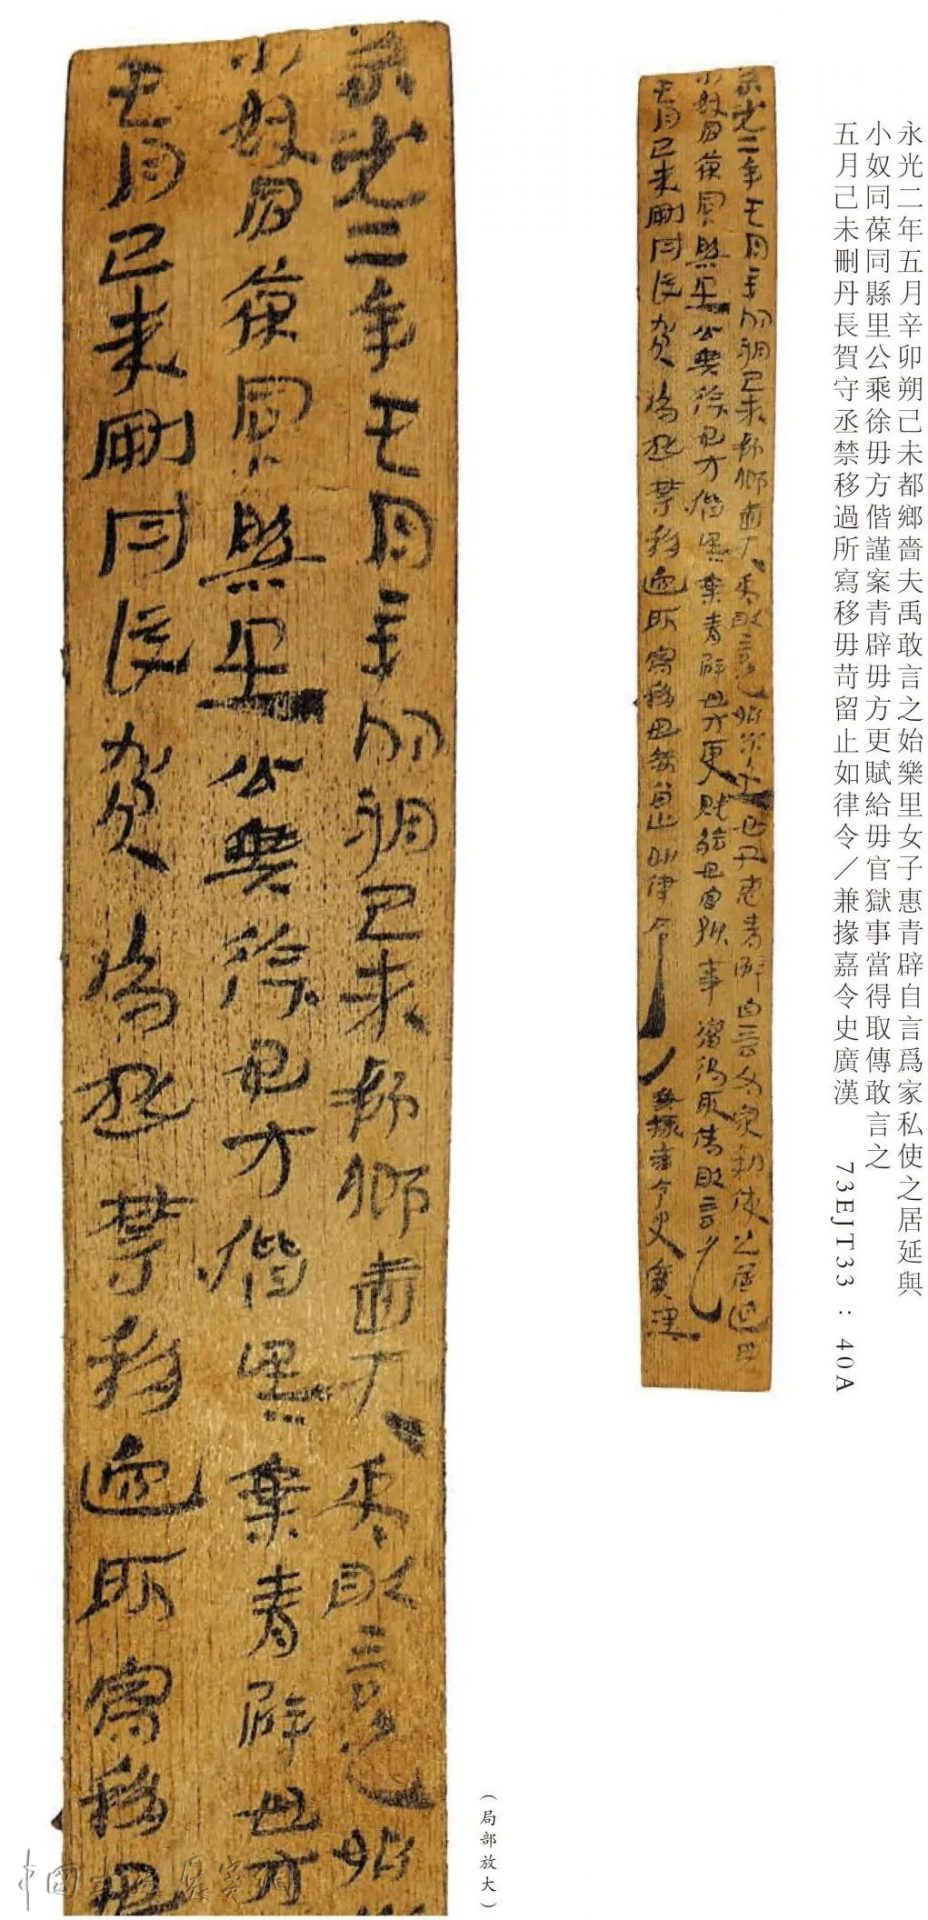 永光二年五月辛卯朔己未都鄉嗇夫禹敢言之始樂里女子惠青辟自言爲家私使之居延與
小奴同葆同縣里公乘徐毋方偕謹案青辟毋方更賦給毋官獄事當得取傳敢言之
五月己未刪丹長賀守丞禁移過所寫移毋苛留止如律令／兼掾嘉令史廣漢 73EJT33：40A
（局部放大）